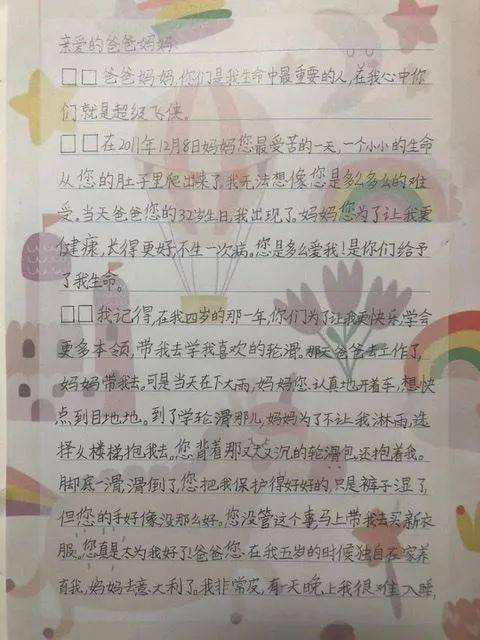 亲爱的爸爸妈妈:
□□爸爸妈妈,你们是我生命中最重要的人,在我心中你
们就是超级飞侠。
□□在2011年12月8日妈妈您最受苦的一天,一个小小的生命
从您的肚子里爬出来了,我无法想像您是多么多么的难
受。当天爸爸您的32岁生日,我出现了。妈妈您为了让我更
健康,长得更好,不生一次病。您是多么爱我!是你们给予
了我生命。
□□我记得,在我四岁的那一年,你们为了让我更快乐,学会
更多本领,带我去学我喜欢的轮滑。那天爸爸去工作了,
妈妈带我去。可是当天在下大雨,妈妈您认真地开着车,想快
点到目地地。到了学轮滑那儿,妈妈为了不让我淋雨,选
择从楼梯抱我去。您背着那又大又沉的轮滑包,还抱着我。
脚底一滑,滑倒了,您把我保护得好好的,只是裤子湿了,
但您的手好像没那么好。您没管这个事马上带我去买新衣
服。您真是太为我好了!爸爸您在我五岁的时候独自在家养
育我,妈妈去意大利了。我非常皮,有一天晚上我很难入睡,